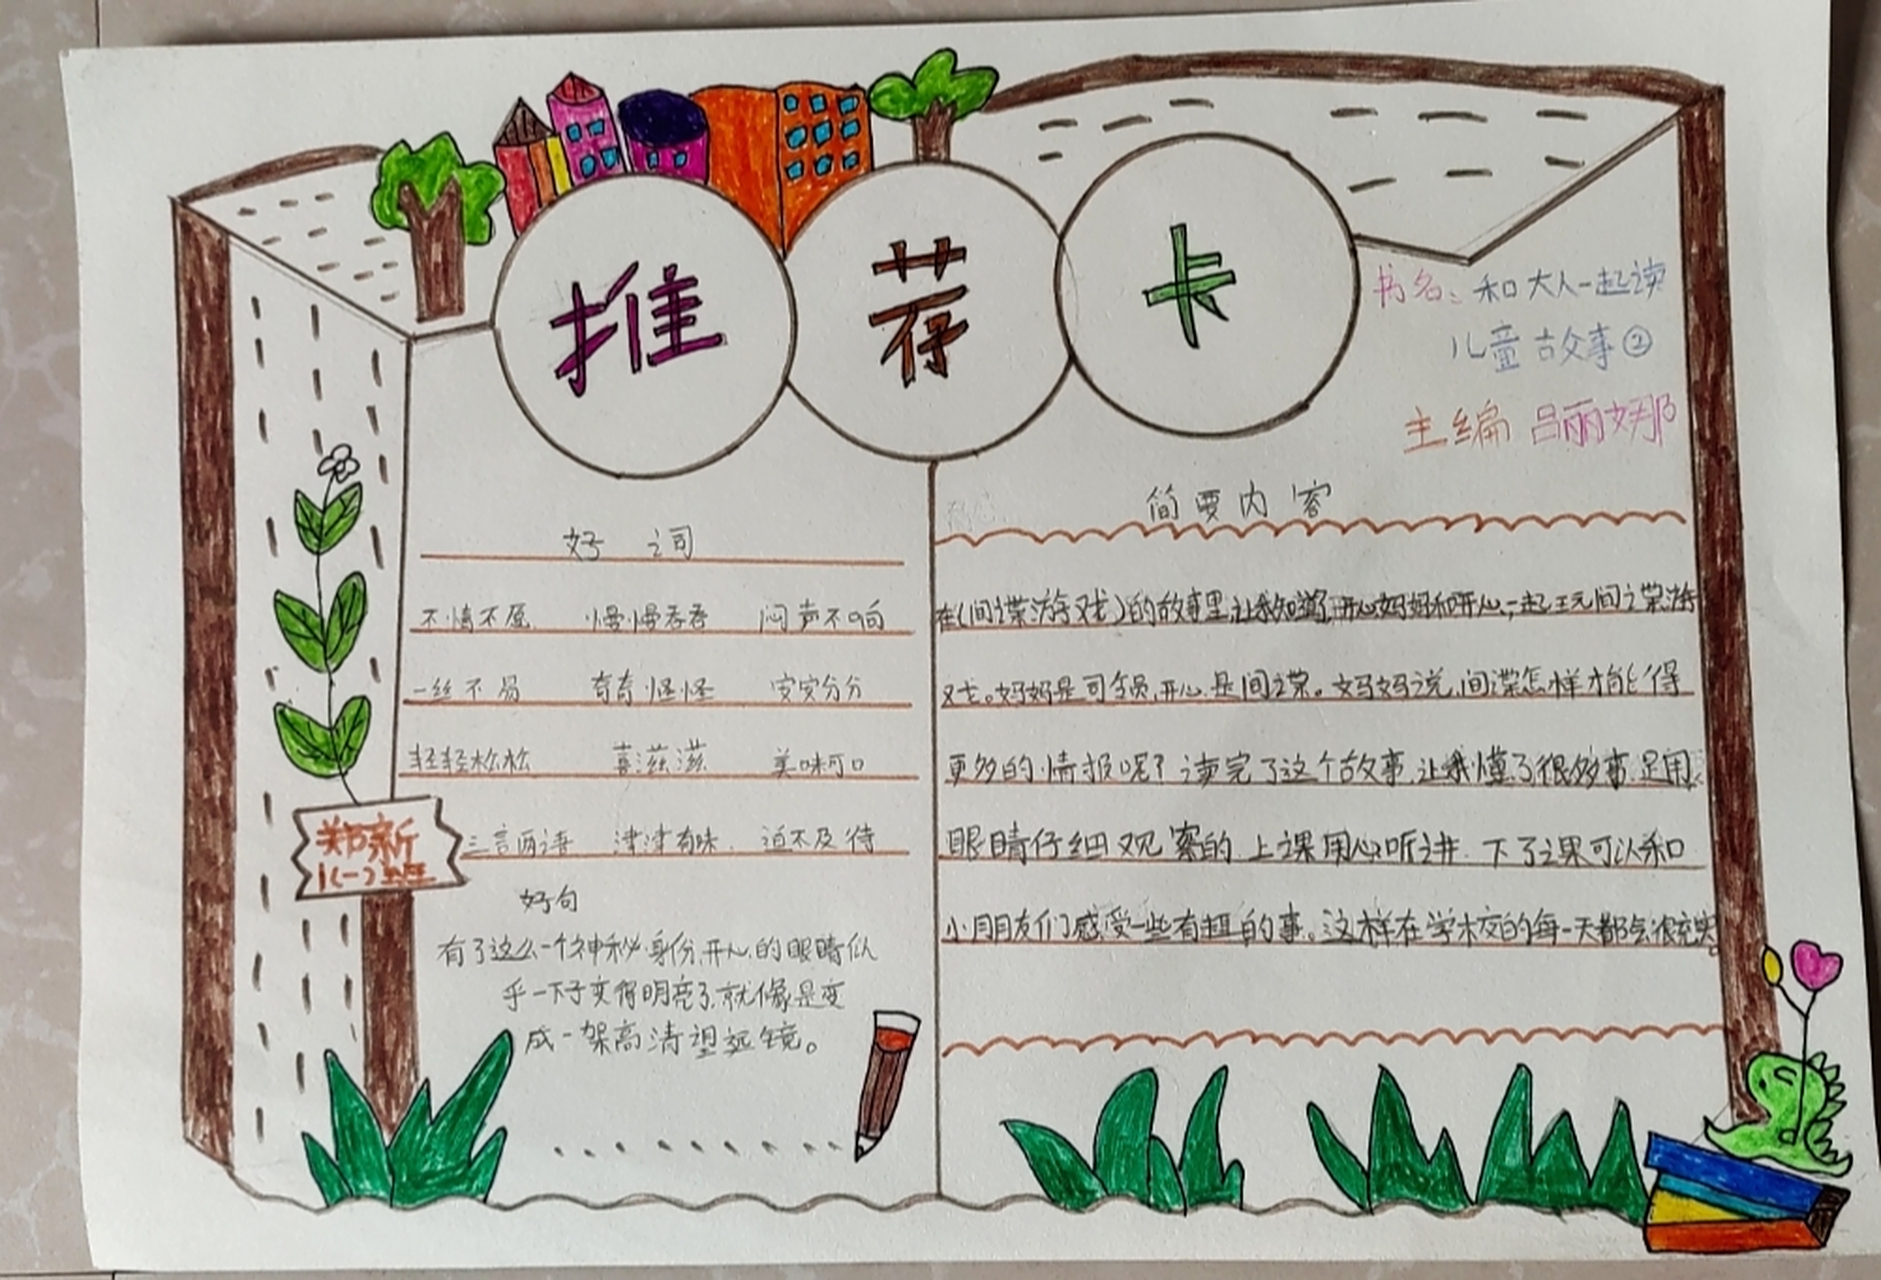 推荐卡
书名：和大人一起读
儿童故事②
主编 吕丽娜
好 词
不情不愿 慢慢吞吞 闷声不响
一丝不苟 奇奇怪怪 安安分分
轻轻松松 喜滋滋 美味可口
三言两语 津津有味 迫不及待
好句
有了这么一个神秘身份,开心的眼睛似
乎一下子变得明亮了,就像是变
成一架高清望远镜。
郑新
1(一)班
简要内容
在《间谍游戏》的故事里,让我知道了,开心妈妈和开心,一起玩间谍游
戏。妈妈是司令员,开心是间谍。妈妈说,间谍怎样才能得
更多的情报呢?读完了这个故事,让我懂了很多事,是用
眼睛仔细观察的,上课用心听讲.下了课可以和
小朋友们感受一些有趣的事。这样在学校的每一天都会很充实。